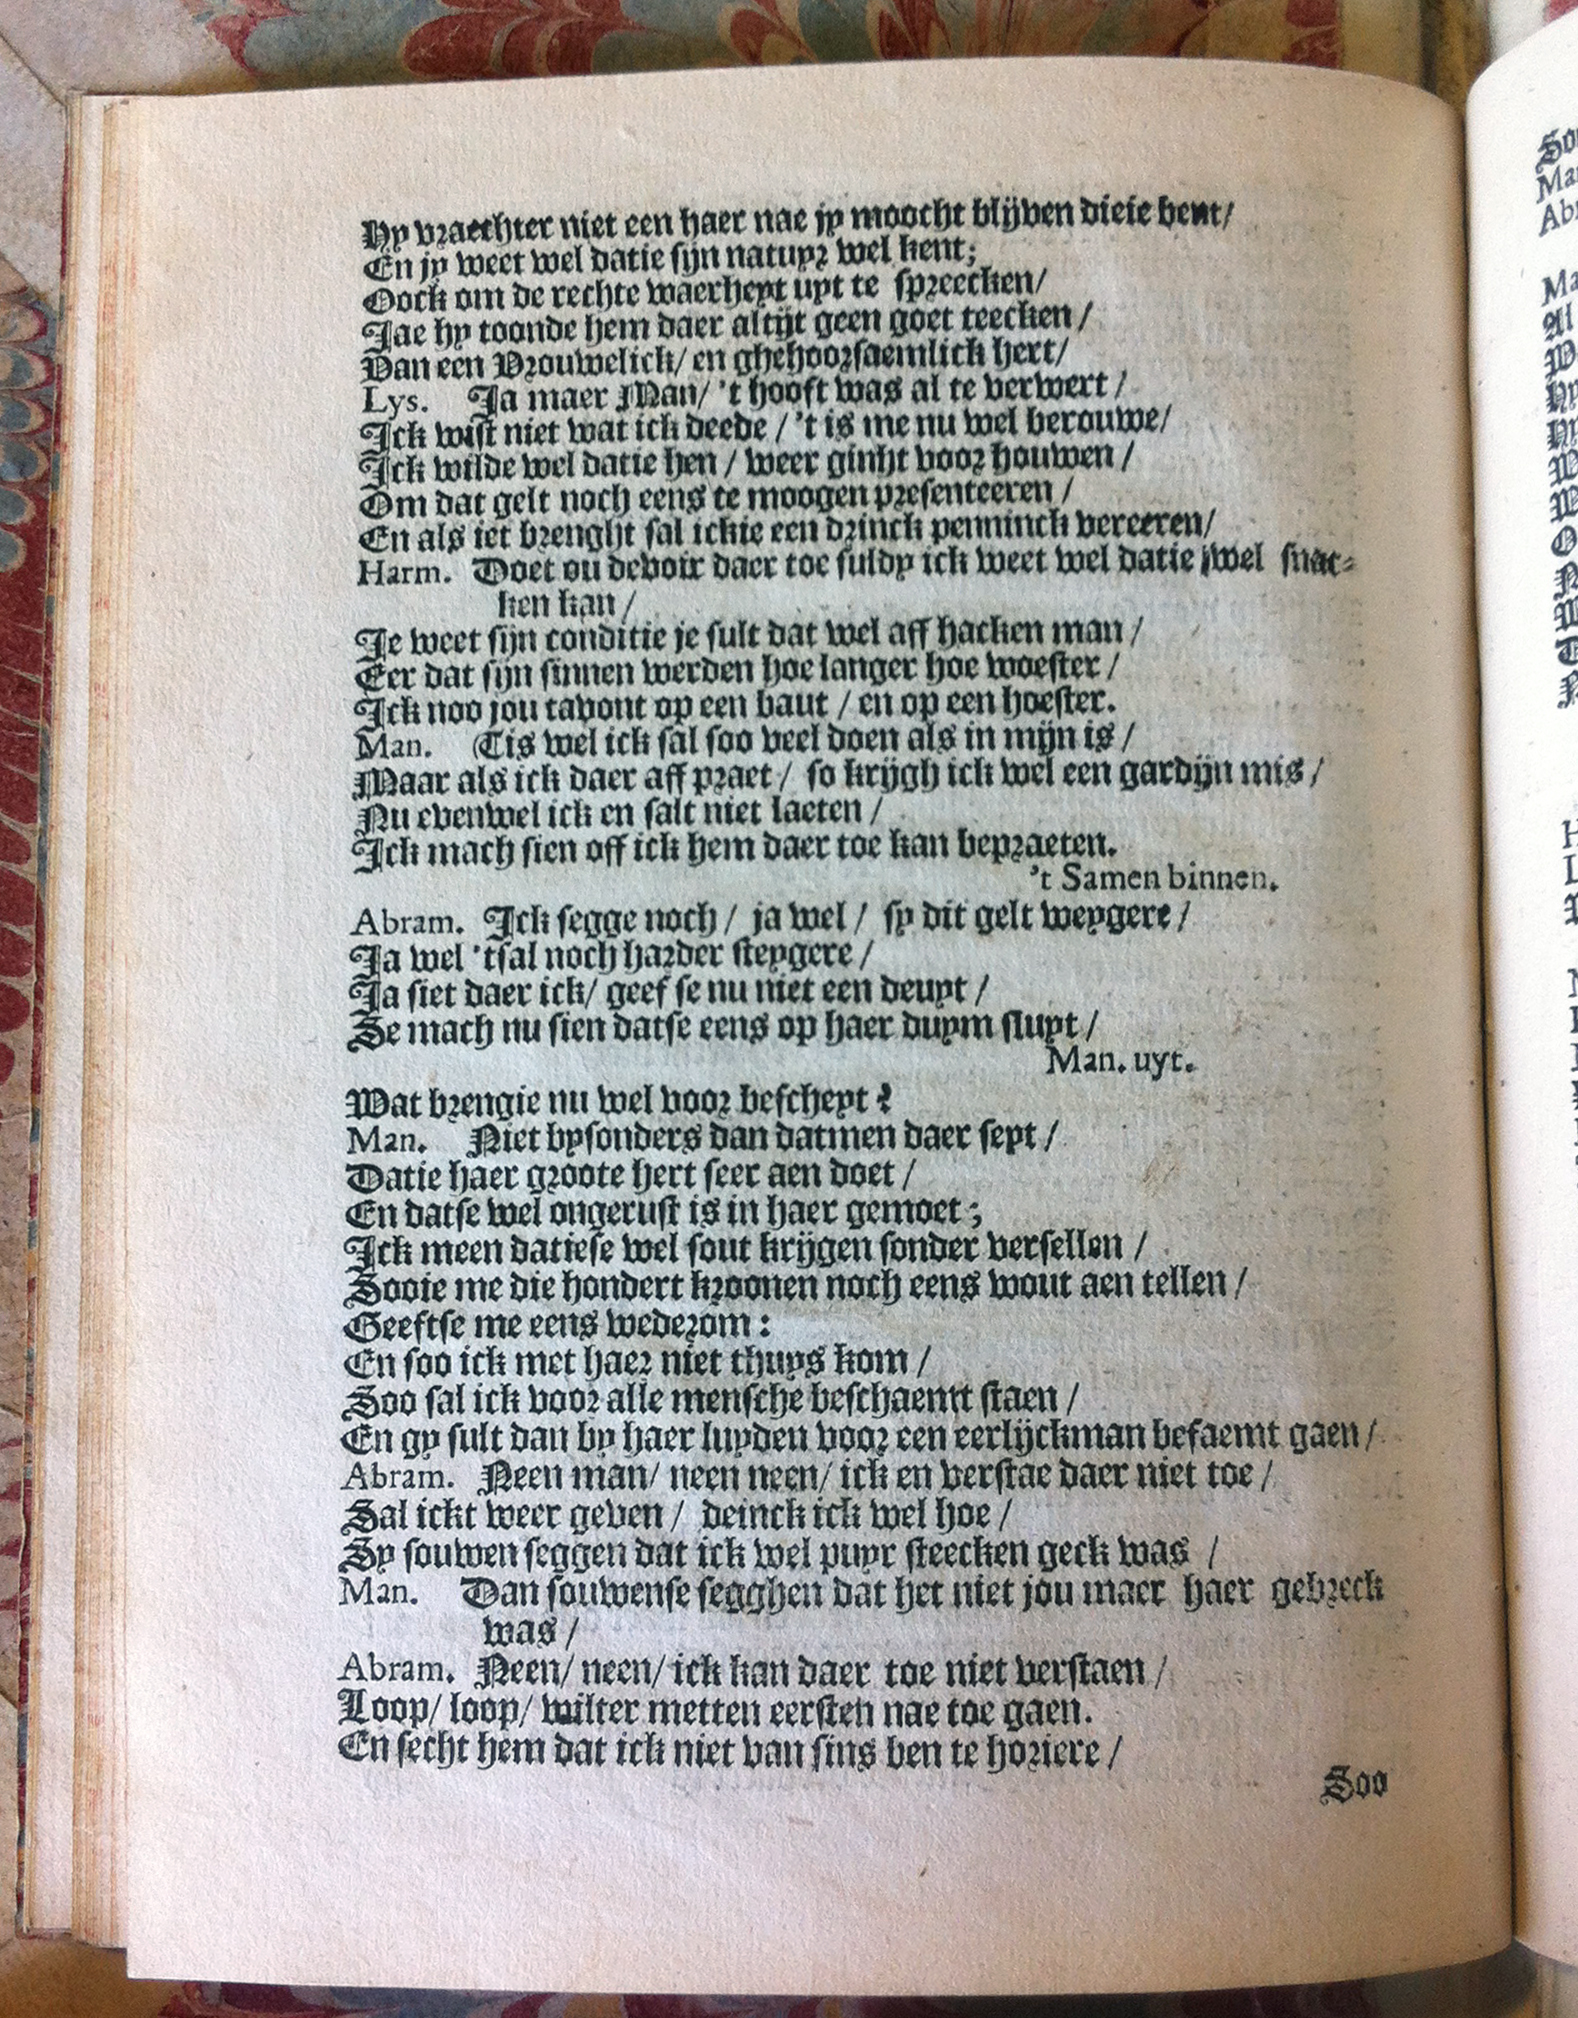 Hy vraechter niet een haer nae jy moocht blijven dieje bent/
En jy weet wel datje sijn natuyr wel kent;
Oock om de rechte waerheyt uyt te spreecken/
Jae hy toonde hem daer altijt geen goet teecken/
Dan een Vrouwelick/ en ghehoorsaemlick hert/
Lys. Ja maer Man/ 't hooft was al te verwert/
Ick wist niet wat ick deede/ 't is me nu wel berouwe/
Ick wilde wel datje hen/ weer ginht voor houwen/
Om dat gelt noch eens te moogen presenteeren/
En als jet brenght sal ickje een drinck penninck vereeren/
Harm. Doet ou devoir daer toe suldy ick weet wel datje wel snac-
ken kan/
Je weet sijn conditie je sult dat wel aff hacken man/
Eer dat sijn sinnen werden hoe langer hoe woester/
Ick noo jou tavont op een baut/ en op een hoester.
Man. Tis wel ick sal soo veel doen als in mijn is/
Maar als ick daer aff praet/ so krijgh ick wel een gardijn mis/
Nu evenwel ick en salt niet laeten/
Ick mach sien off ick hem daer toe kan bepraeten.
't Samen binnen.
Abram. Ick segge noch/ ja wel/ sy dit gelt weygere/
Ja wel 'tsal noch harder steygere/
Ja siet daer ick/ geef se nu niet een deuyt/
Se mach nu sien datse eens op haer duym sluyt/
Man. uyt.
Wat brengje nu wel voor bescheyt?
Man. Niet bysonders dan datmen daer seyt/
Datje haer groote hert seer aen doet/
En datse wel ongerust is in haer gemoet;
Ick meen datjese wel sout krijgen sonder versellen/
Sooje me die hondert kroonen noch eens wout aen tellen/
Geeftse me eens wederom:
En soo ick met haer niet thuys kom/
Soo sal ick voor alle mensche beschaemt staen/
En gy sult dan by haer luyden voor een eerlijckman befaemt gaen/
Abram. Neen man/ neen neen/ ick en verstae daer niet toe/
Sal ickt weer geven/ deinck ick wel hoe/
Sy souwen seggen dat ick wel puyr steecken geck was/
Man. Dan souwense segghen dat het niet jou maer haer gebreck
was/
Abram. Neen/ neen/ ick kan daer toe niet verstaen/
Loop/ loop/ wilter metten eersten nae toe gaen.
En secht hem dat ick niet van sins ben te horiere/
Soo